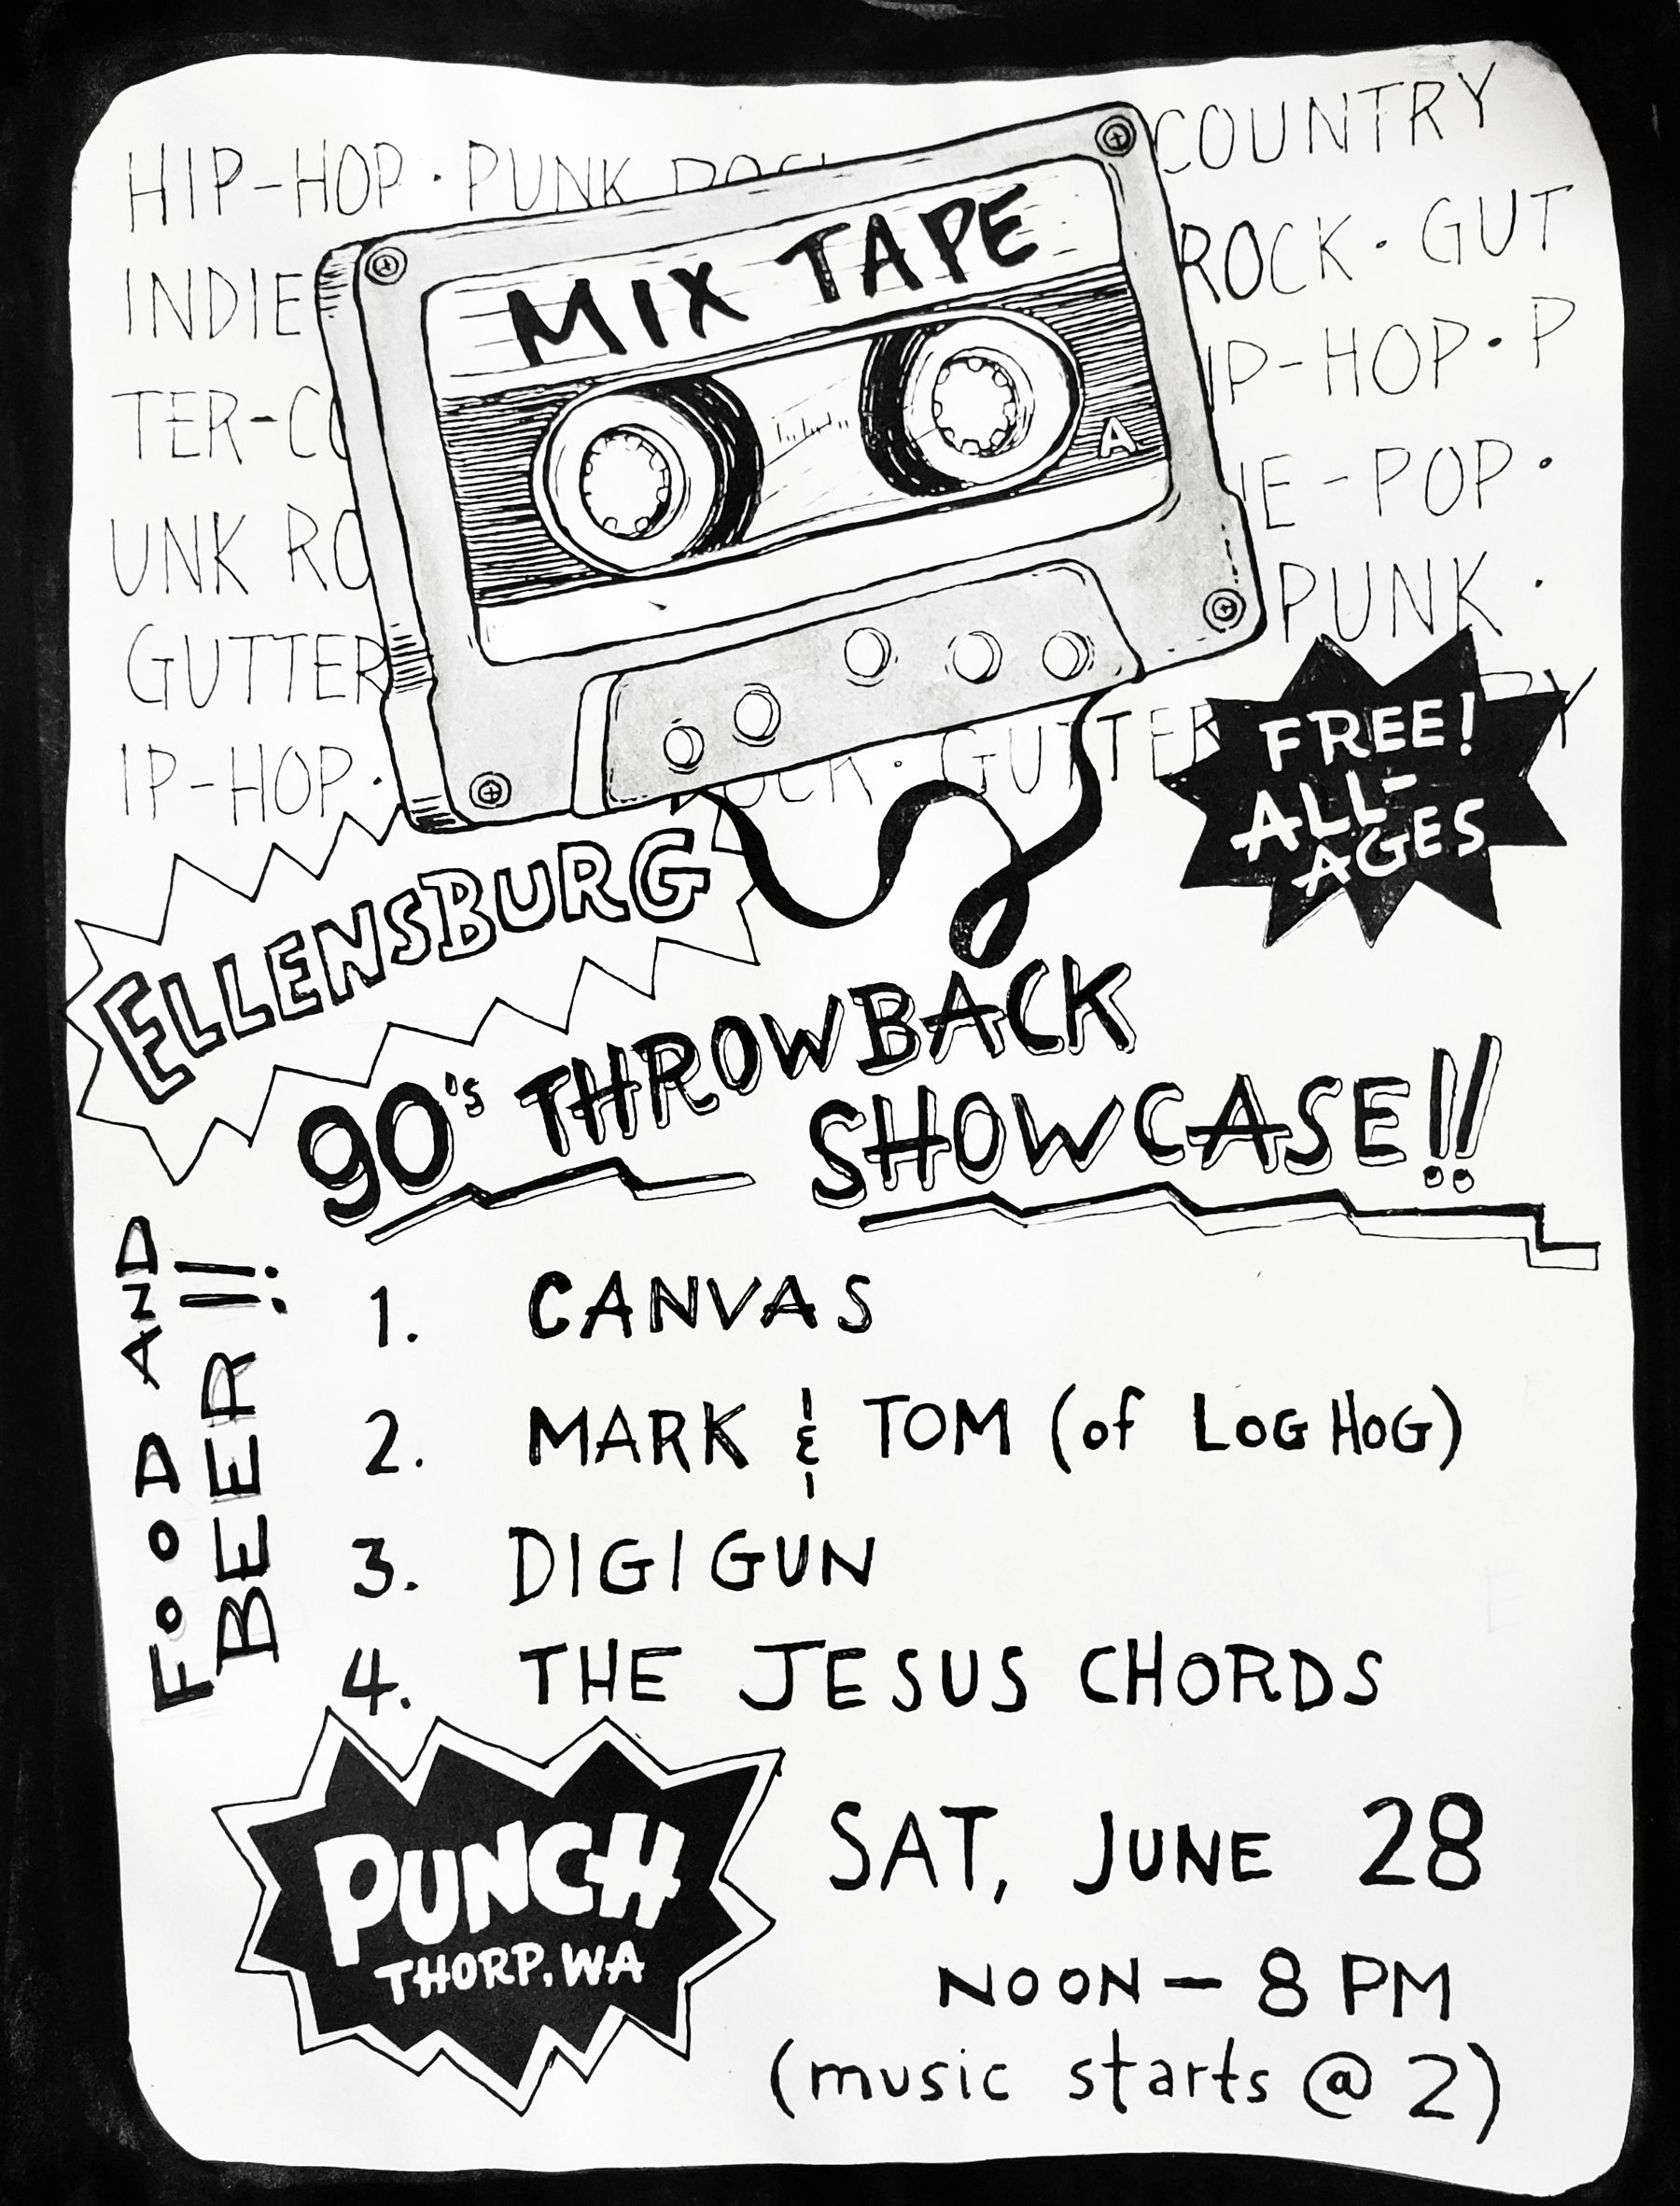 HIP-HOP · PUNK ROCK COUNTRY
INDIE ROCK · GUT
TER-CO IP-HOP · P
UNK RO IE-POP ·
GUTTER PUNK ·
IP-HOP · OCK · GUTTER RY
MIX TAPE
A
FREE!
ALL-
AGES
ELLENSBURG
90's THROWBACK
SHOWCASE!!
FOOD AND
BEER!!
1. CANVAS
2. MARK & TOM (of LOG HOG)
3. DIGIGUN
4. THE JESUS CHORDS
PUNCH
THORP, WA
SAT, JUNE 28
NOON — 8 PM
(music starts @ 2)